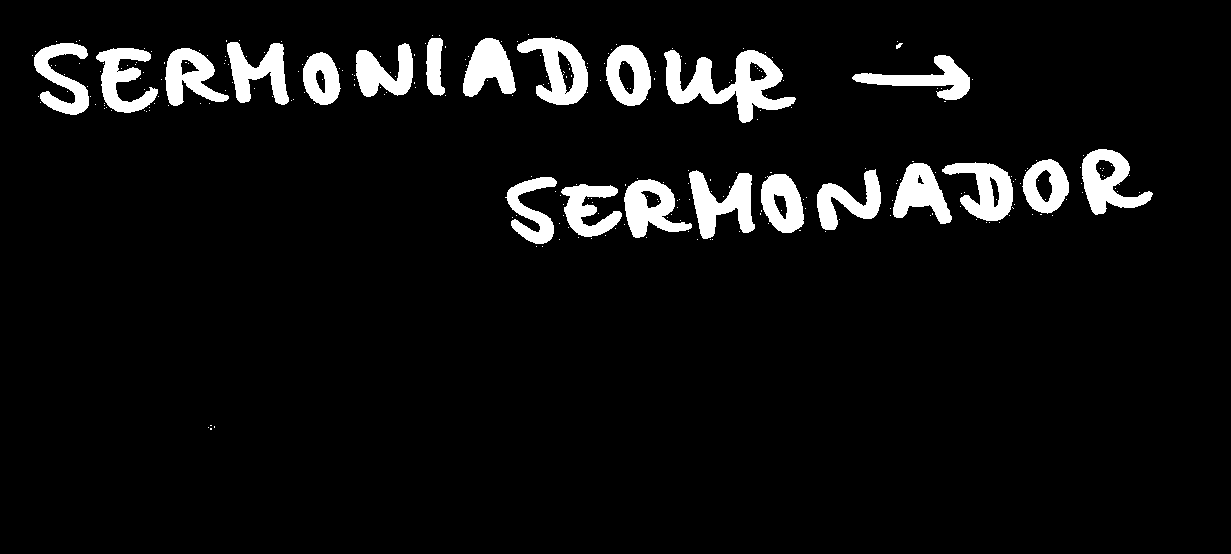 SERMONIADOUR →
SERMONADOR